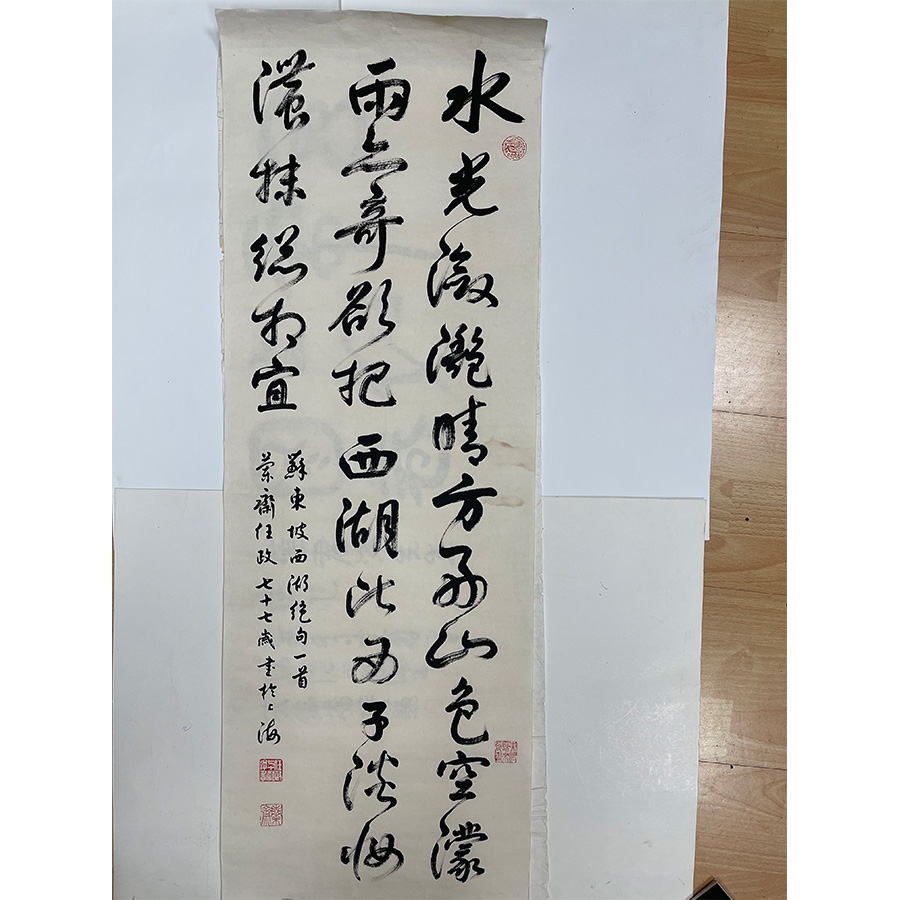 水光瀲灧晴方好山色空濛
雨亦奇欲把西湖比西子淡妆
濃抹總相宜
蘇東坡西湖絕句一首
蘭齋任政七十七歲書於上海